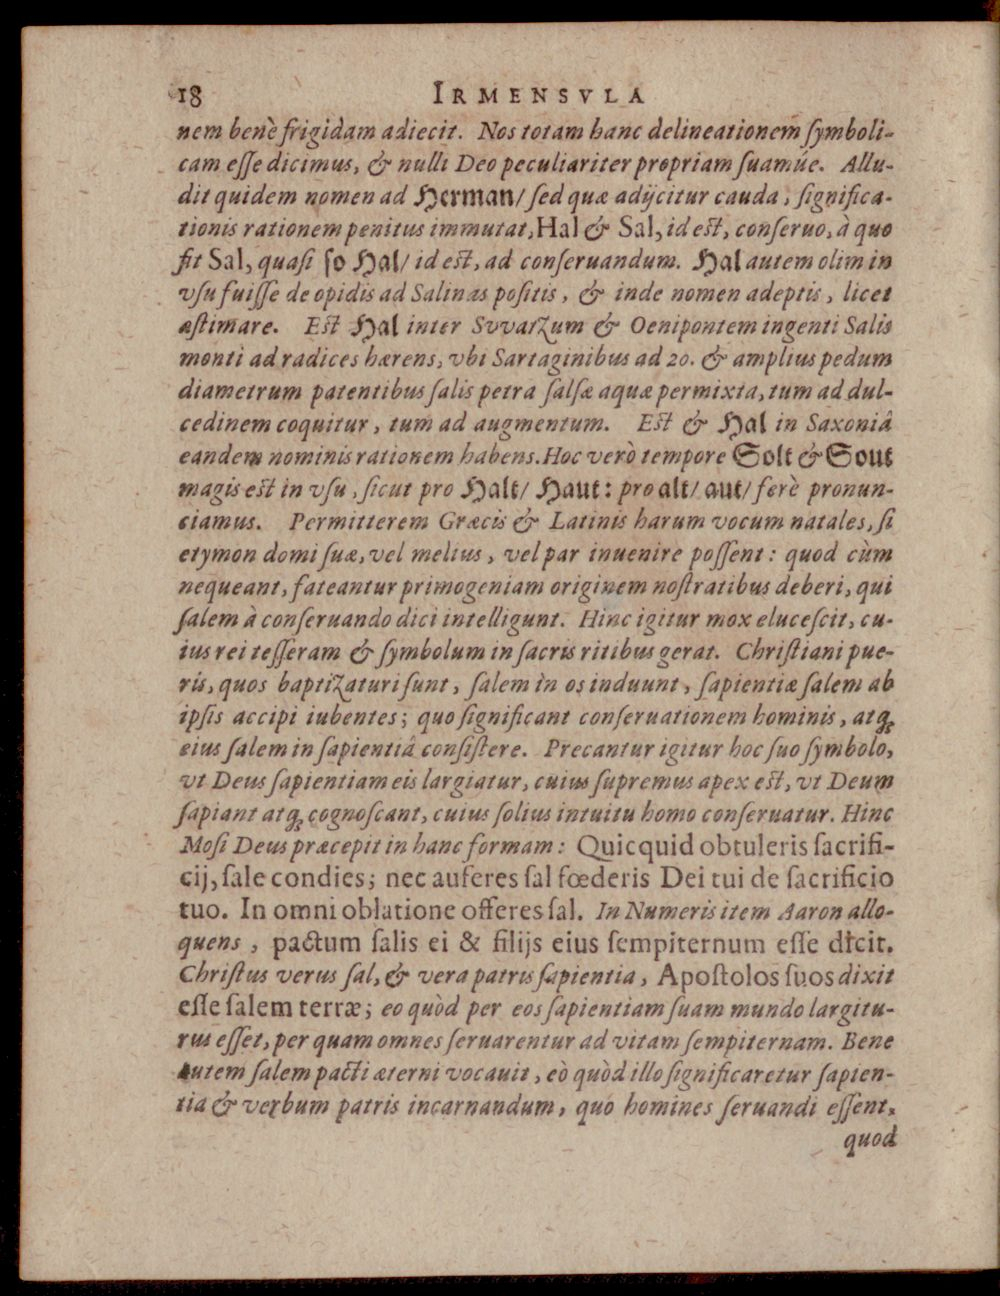 18 IRMENSVLA
nem benè frigidam adiecit. Nos totam hanc delineationem ſymboli-
cam eſſe dicimus, & nulli Deo peculiariter propriam ſuamúe. Allu-
dit quidem nomen ad Herman/ ſed quæ adijcitur cauda, ſignifica-
tionis rationem penitus immutat, Hal & Sal, id eſt, conſeruo, à quo
fit Sal, quaſi ſo Hal/ id eſt, ad conſeruandum. Hal autem olim in
vſu fuiſſe de opidis ad Salinas poſitis, & inde nomen adeptis, licet
æſtimare. Eſt Hal inter Svvatzum & Oenipontem ingenti Salis
monti ad radices hærens, vbi Sartaginibus ad 20. & amplius pedum
diametrum patentibus ſalis petra ſalſæ aquæ permixta, tum ad dul-
cedinem coquitur, tum ad augmentum. Eſt & Hal in Saxoniâ
eandem nominis rationem habens. Hoc verò tempore Solt & Sout
magis eſt in vſu, ſicut pro Halt/ Haut: pro alt/ aut/ ferè pronun-
ciamus. Permitterem Græcis & Latinis harum vocum natales, ſi
etymon domi ſuæ, vel melius, vel par inuenire poſſent: quod cùm
nequeant, fateantur primogeniam originem noſtratibus deberi, qui
ſalem à conſeruando dici intelligunt. Hinc igitur mox eluceſcit, cu-
ius rei teſſeram & ſymbolum in ſacris ritibus gerat. Chriſtiani pue-
ris, quos baptizaturi ſunt, ſalem in os induunt, ſapientiæ ſalem ab
ipſis accipi iubentes; quo ſignificant conſeruationem hominis, atq;
eius ſalem in ſapientiâ conſiſtere. Precantur igitur hoc ſuo ſymbolo,
vt Deus ſapientiam eis largiatur, cuius ſupremus apex eſt, vt Deum
ſapiant atq; cognoſcant, cuius ſolius intuitu homo conſeruatur. Hinc
Moſi Deus præcepit in hanc formam: Quicquid obtuleris ſacrifi-
cij, ſale condies; nec auferes ſal fœderis Dei tui de ſacrificio
tuo. In omni oblatione offeres ſal. In Numeris item Aaron allo-
quens, pactum ſalis ei & filijs eius ſempiternum eſſe dicit.
Chriſtus verus ſal, & vera patris ſapientia, Apoſtolos ſuos dixit
eſſe ſalem terræ; eo quòd per eos ſapientiam ſuam mundo largitu-
rus eſſet, per quam omnes ſeruarentur ad vitam ſempiternam. Bene
autem ſalem pacti æterni vocauit, eò quòd illo ſignificaretur ſapien-
tia & verbum patris incarnandum, quo homines ſeruandi eſſent,
quod